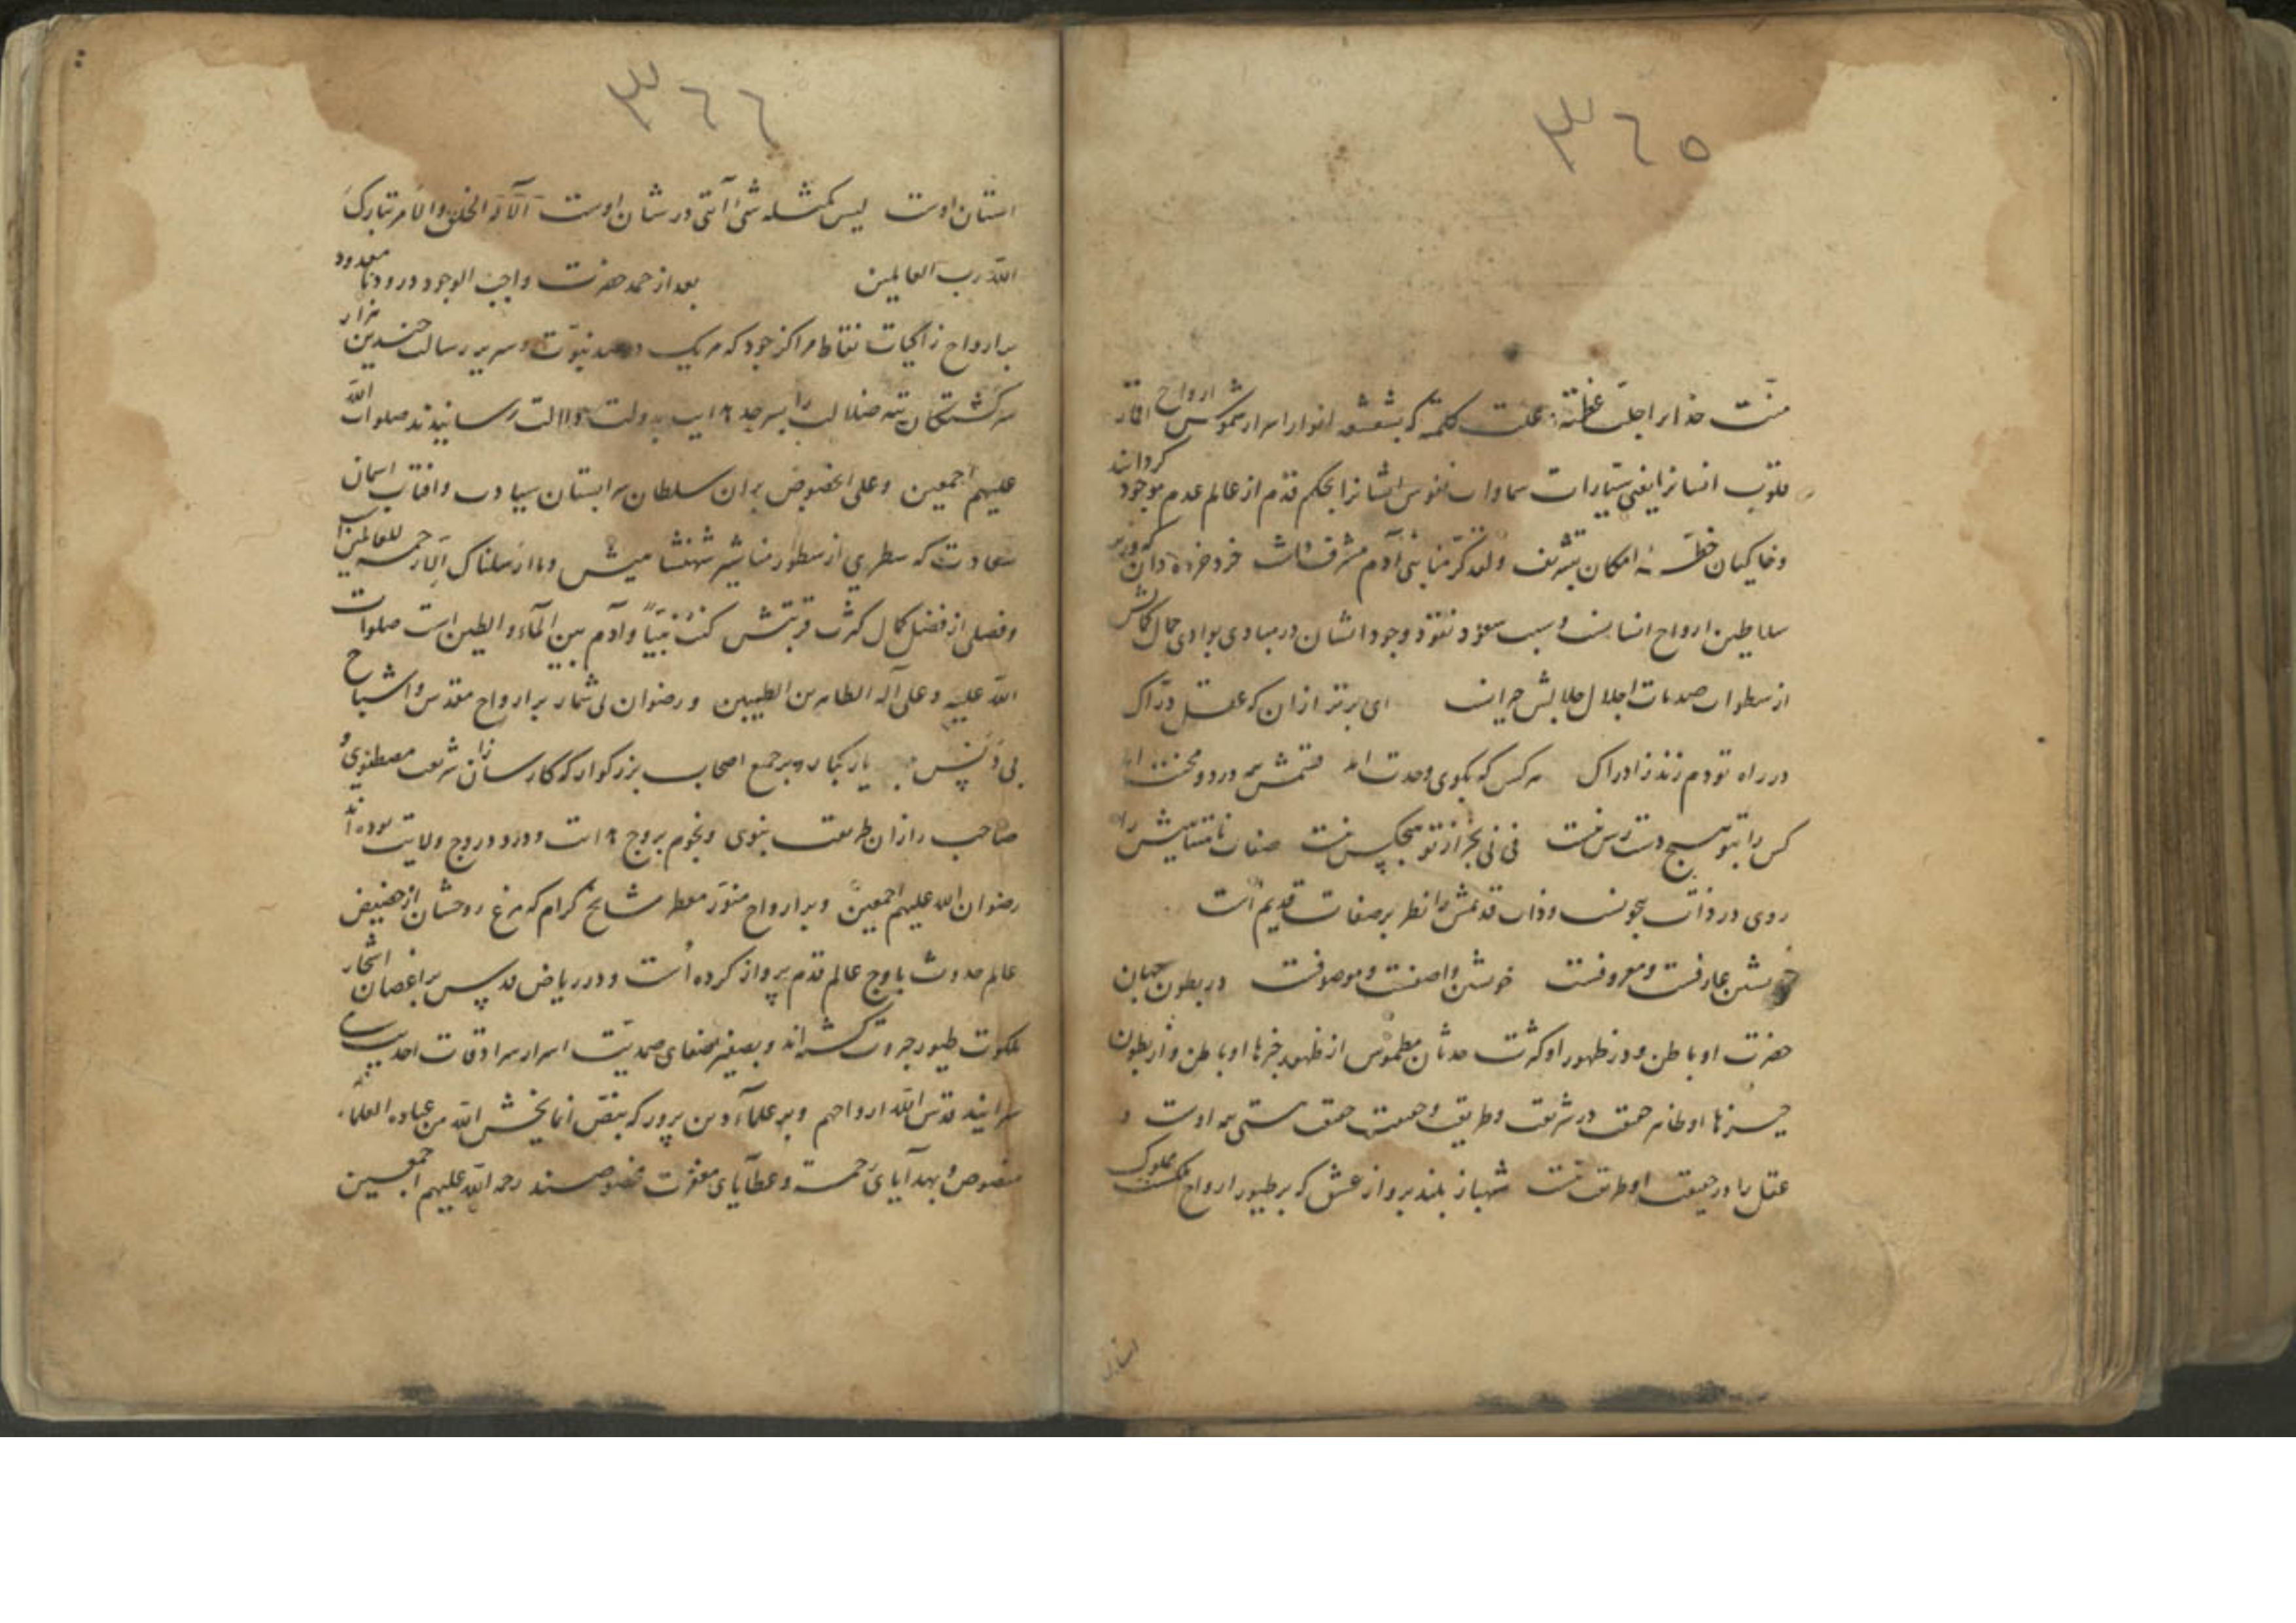 ۳٦٥
منّت خدایرا جلّت عظمته و علت کلمته که بشعشعه انوار اسرار شموس ارواح اقمار
قلوب انسانرا یعنی سیّارات سماوات نفوس ایشانرا بحکم قدم از عالم عدم موجود کردانید
و خاکیان خطّه امکان بتشریف ولقد کرّمنا بنی آدم مشرف خرد خرده دان که وزیر
سلاطین ارواح انسانیست و سبب نفوذ وجود انسان در مبادی بوادی جمال کمالش
از سطوات صدمات اجلال جلالش حیرانست ای برتر ازان که عقل درّاک
در راه تو دم زند ز ادراک هر کس که بکوی وحدت آمد قسمش همه درد و محنت آمد
کس را بتو هیچ دست رس نیست فی فی بجز از تو هیچکس نیست صفات نامتناهیش را
روی در ذات بیچونست و ذات قدیمش را نظر بر صفات قدیم است
خویشتن عارفست و معروفست خویشتن واصفست و موصوفست در بطون جهان
حضرت او باطن و در ظهور او کثرت حدثان مطموس از ظهور چیزها او باطن و از بطون
چیزها او ظاهر در شریعت و طریقت و حقیقت هستی همه اوست و
عقل را در حقیقت او طریقت نیست شهباز بلند پرواز عشق که بر طیور ارواح ملوک
۳٦٦
استان اوست لیس کمثله شئ آیتی در شان اوست الا له الخلق والامر تبارک
الله رب العالمین بعد از حمد حضرت واجب الوجود درود نامعدود
بر ارواح زاکیات نقاط مراکز جود که هر یک در مهد نبوّت و سریر رسالت چندین هزار
سرکشتکان تیه ضلالت را بسرحد هدایت بدولت رسانیدند صلوات الله
علیهم اجمعین و علی الخصوص بران سلطان سیادت و افتاب اسمان
سعادت که سطری از سطور مناشیر شهنشاهیش وما ارسلناک الا رحمة للعالمین است
و فصلی از فضل کمال قربتش کنت نبیّاً و آدم بین الماء و الطین است صلوات
الله علیه و علی آله الطاهرین الطیبین و رضوان بی شمار بر ارواح مقدس و اشباح
بی دنس یار کبار و بر جمع اصحاب بزرکوار که کارسازان شریعت مصطفوی و
صاحب رازان طریقت نبوی و نجوم بروج هدایت و درر دروج ولایت بوده اند
رضوان الله علیهم اجمعین و بر ارواح منوّر معطر مشایخ کرام که مرغ روحشان از حضیض
عالم حدوث باوج عالم قدم پرواز کرده است و در ریاض قدس بر اغصان اشجار
ملکوت طیور جبروت کشته اند و بصفیر صمدیّت اسرار سرادقات احدیت
سرایند قدس الله ارواحهم و بر علمآء دین پرور که بنصّ انما یخشی الله من عباده العلماء
منصوص و بهدآیای رحمت و عطآیای مغفرت مخصوصند رحمة الله علیهم اجمعین